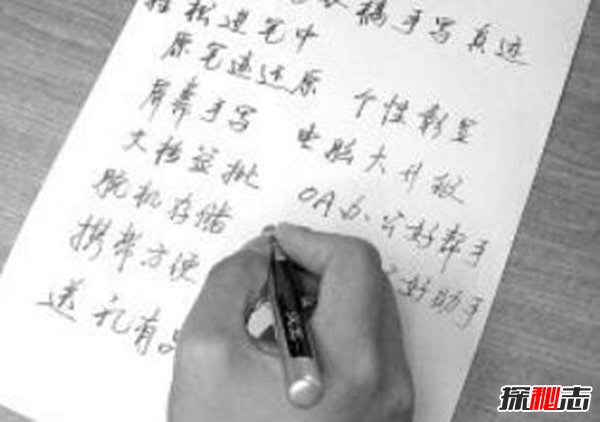 稿手写真迹
轻松进笔中
原笔迹还原 个性彰显
屏幕手写 电脑大升级
文档签批 OA办公好帮手
脱机存储 好助手
携带方便
送礼有品
探秘志